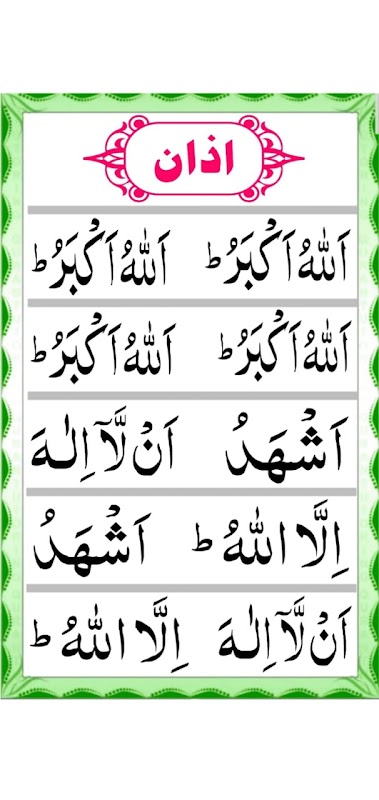 اذان
اَللّٰهُ اَکْبَرُ ؕ اَللّٰهُ اَکْبَرُ ؕ
اَللّٰهُ اَکْبَرُ ؕ اَللّٰهُ اَکْبَرُ ؕ
اَشْهَدُ اَنْ لَّاۤ اِلٰهَ
اِلَّا اللّٰهُ ؕ اَشْهَدُ
اَنْ لَّاۤ اِلٰهَ اِلَّا اللّٰهُ ؕ